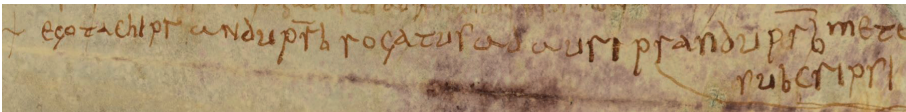 + ego tachipr andu pr̄b rogatus ad auripr andu pr̄b mete
subcripsi